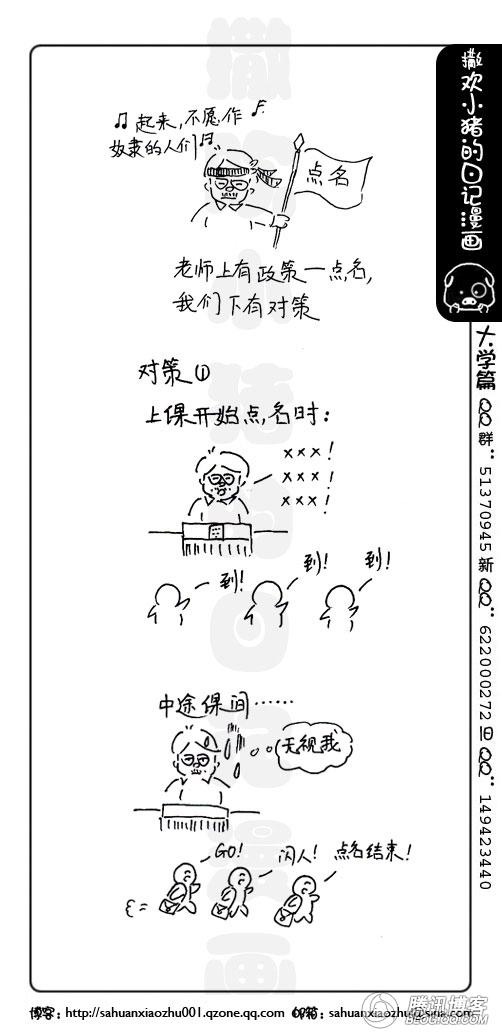 ♫ 起来,不愿作
奴隶的人们
点名
老师上有政策一点名,
我们下有对策
对策①
上课开始点名时:
×××!
×××!
×××!
到!
到!
到!
中途课间……
无视我
GO!
闪人!
点名结束!
撒欢小猪的日记漫画
大学篇 QQ群:51370945 新QQ:622000272 旧QQ:149423440
撒欢小猪的日记漫画
博客:http://sahuanxiaozhu001.qzone.qq.com 邮箱:sahuanxiaozhu@sina.com
腾讯博客
BLOG.QQ.COM